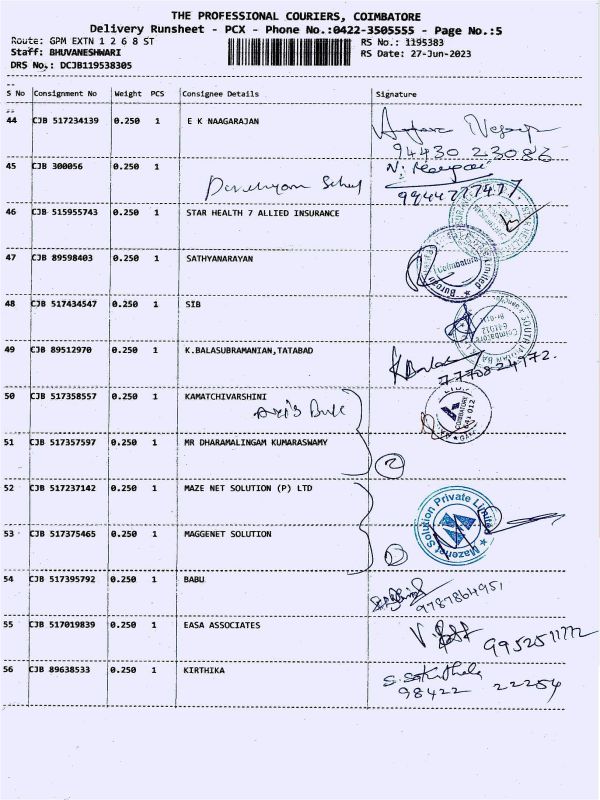 THE PROFESSIONAL COURIERS, COIMBATORE
Delivery Runsheet - PCX - Phone No.:0422-3505555 - Page No.:5
Route: GPM EXTN 1 2 6 8 ST RS No.: 1195383
Staff: BHUVANESHWARI RS Date: 27-Jun-2023
DRS No.: DCJB119538305
S No Consignment No Weight PCS Consignee Details Signature
44 CJB 517234139 0.250 1 E K NAAGARAJAN
94430 23086
45 CJB 300056 0.250 1
9944777477
46 CJB 515955743 0.250 1 STAR HEALTH 7 ALLIED INSURANCE
47 CJB 89598403 0.250 1 SATHYANARAYAN
Coimbatore
48 CJB 517434547 0.250 1 SIB
SOUTH INDIAN BA
Coimbatore
641012
49 CJB 89512970 0.250 1 K.BALASUBRAMANIAN,TATABAD
7770824972.
50 CJB 517358557 0.250 1 KAMATCHIVARSHINI
COIMBATORE
641 012
51 CJB 517357597 0.250 1 MR DHARAMALINGAM KUMARASWAMY
2
52 CJB 517237142 0.250 1 MAZE NET SOLUTION (P) LTD
Mazenet Solution Private Limited
53 CJB 517375465 0.250 1 MAGGENET SOLUTION
54 CJB 517395792 0.250 1 BABU
9787864951
55 CJB 517019839 0.250 1 EASA ASSOCIATES
9952511772
56 CJB 89638533 0.250 1 KIRTHIKA
98422 22254